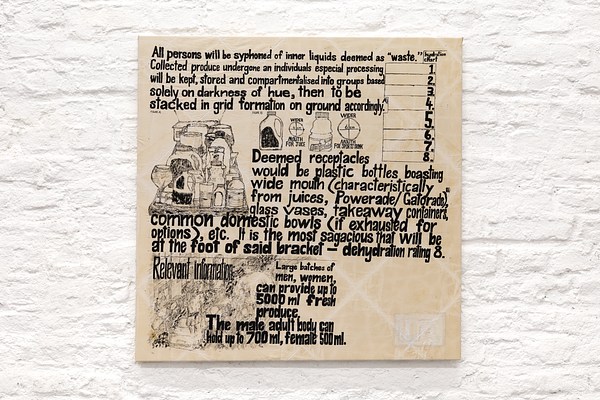 All persons will be syphoned of inner liquids deemed as "waste."
Collected produce undergone an individuals especial processing
will be kept, stored and compartmentalised into groups based
solely on darkness of hue, then to be
stacked in grid formation on ground accordingly.
hydration
chart
1.
2.
3.
4.
5.
6.
7.
8.
WIDER
MOUTH
FOR JUICE
WIDER
MOUTH
FOR SPORTS DRINK
Deemed receptacles
would be plastic bottles boasting
wide mouth (characteristically
from juices, Powerade/Gatorade),
glass vases, takeaway containers,
common domestic bowls (if exhausted for
options), etc. It is the most sagacious that will be
at the foot of said bracket – dehydration rating 8.
Relevant information:
Large batches of
men, women,
can provide up to
5000 ml fresh
produce.
The male adult body can
hold up to 700 ml, female 500 ml.